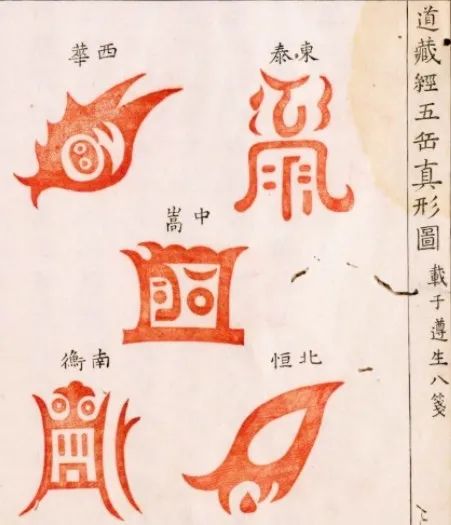 道藏經五岳真形圖
載于遵生八箋
東泰
西華
中嵩
南衡
北恒